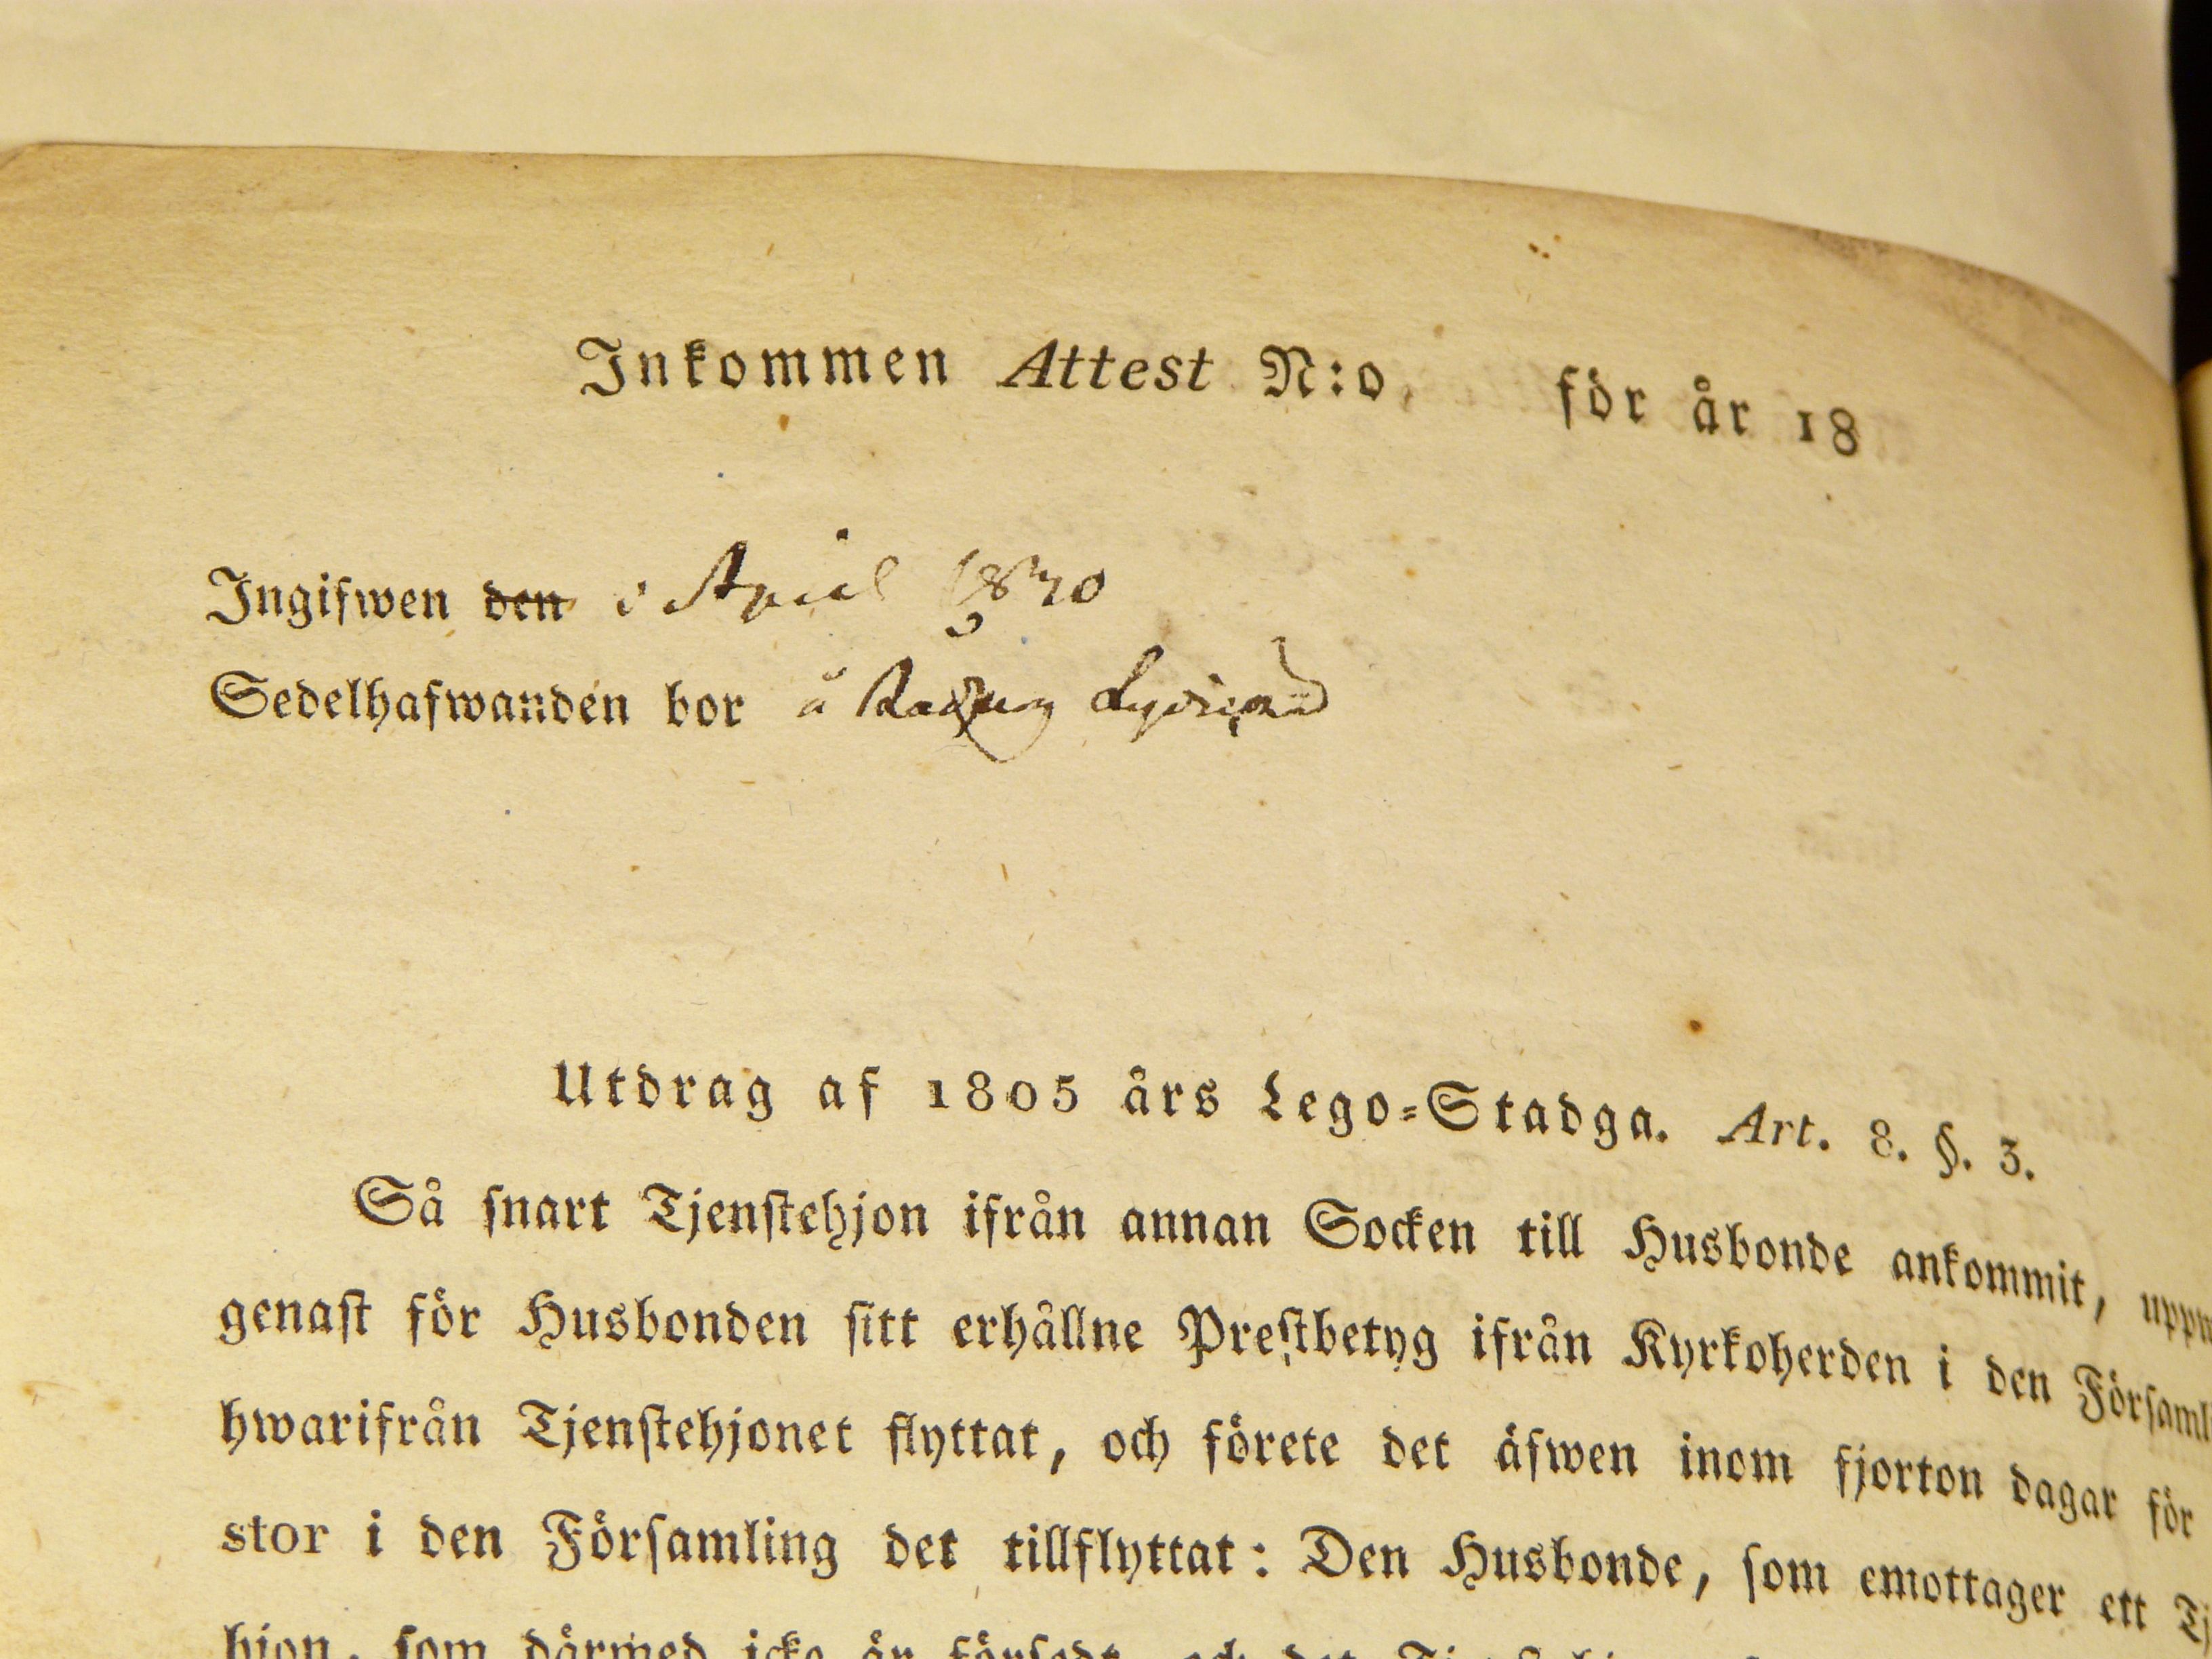 Inkommen Attest N:o för år 18
Ingifwen den i April 1830
Sedelhafwanden bor å
Utdrag af 1805 års Lego-Stadga. Art. 8. §. 3.
Så snart Tjenstehjon ifrån annan Socken till Husbonde ankommit,
genast för Husbonden sitt erhållne Prestbetyg ifrån Kyrkoherden i den Församl
hwarifrån Tjenstehjonet flyttat, och förete det äfwen inom fjorton dagar för
stor i den Församling det tillflyttat: Den Husbonde, som emottager ett Tj
hjon, som därmed icke är försedt, och det